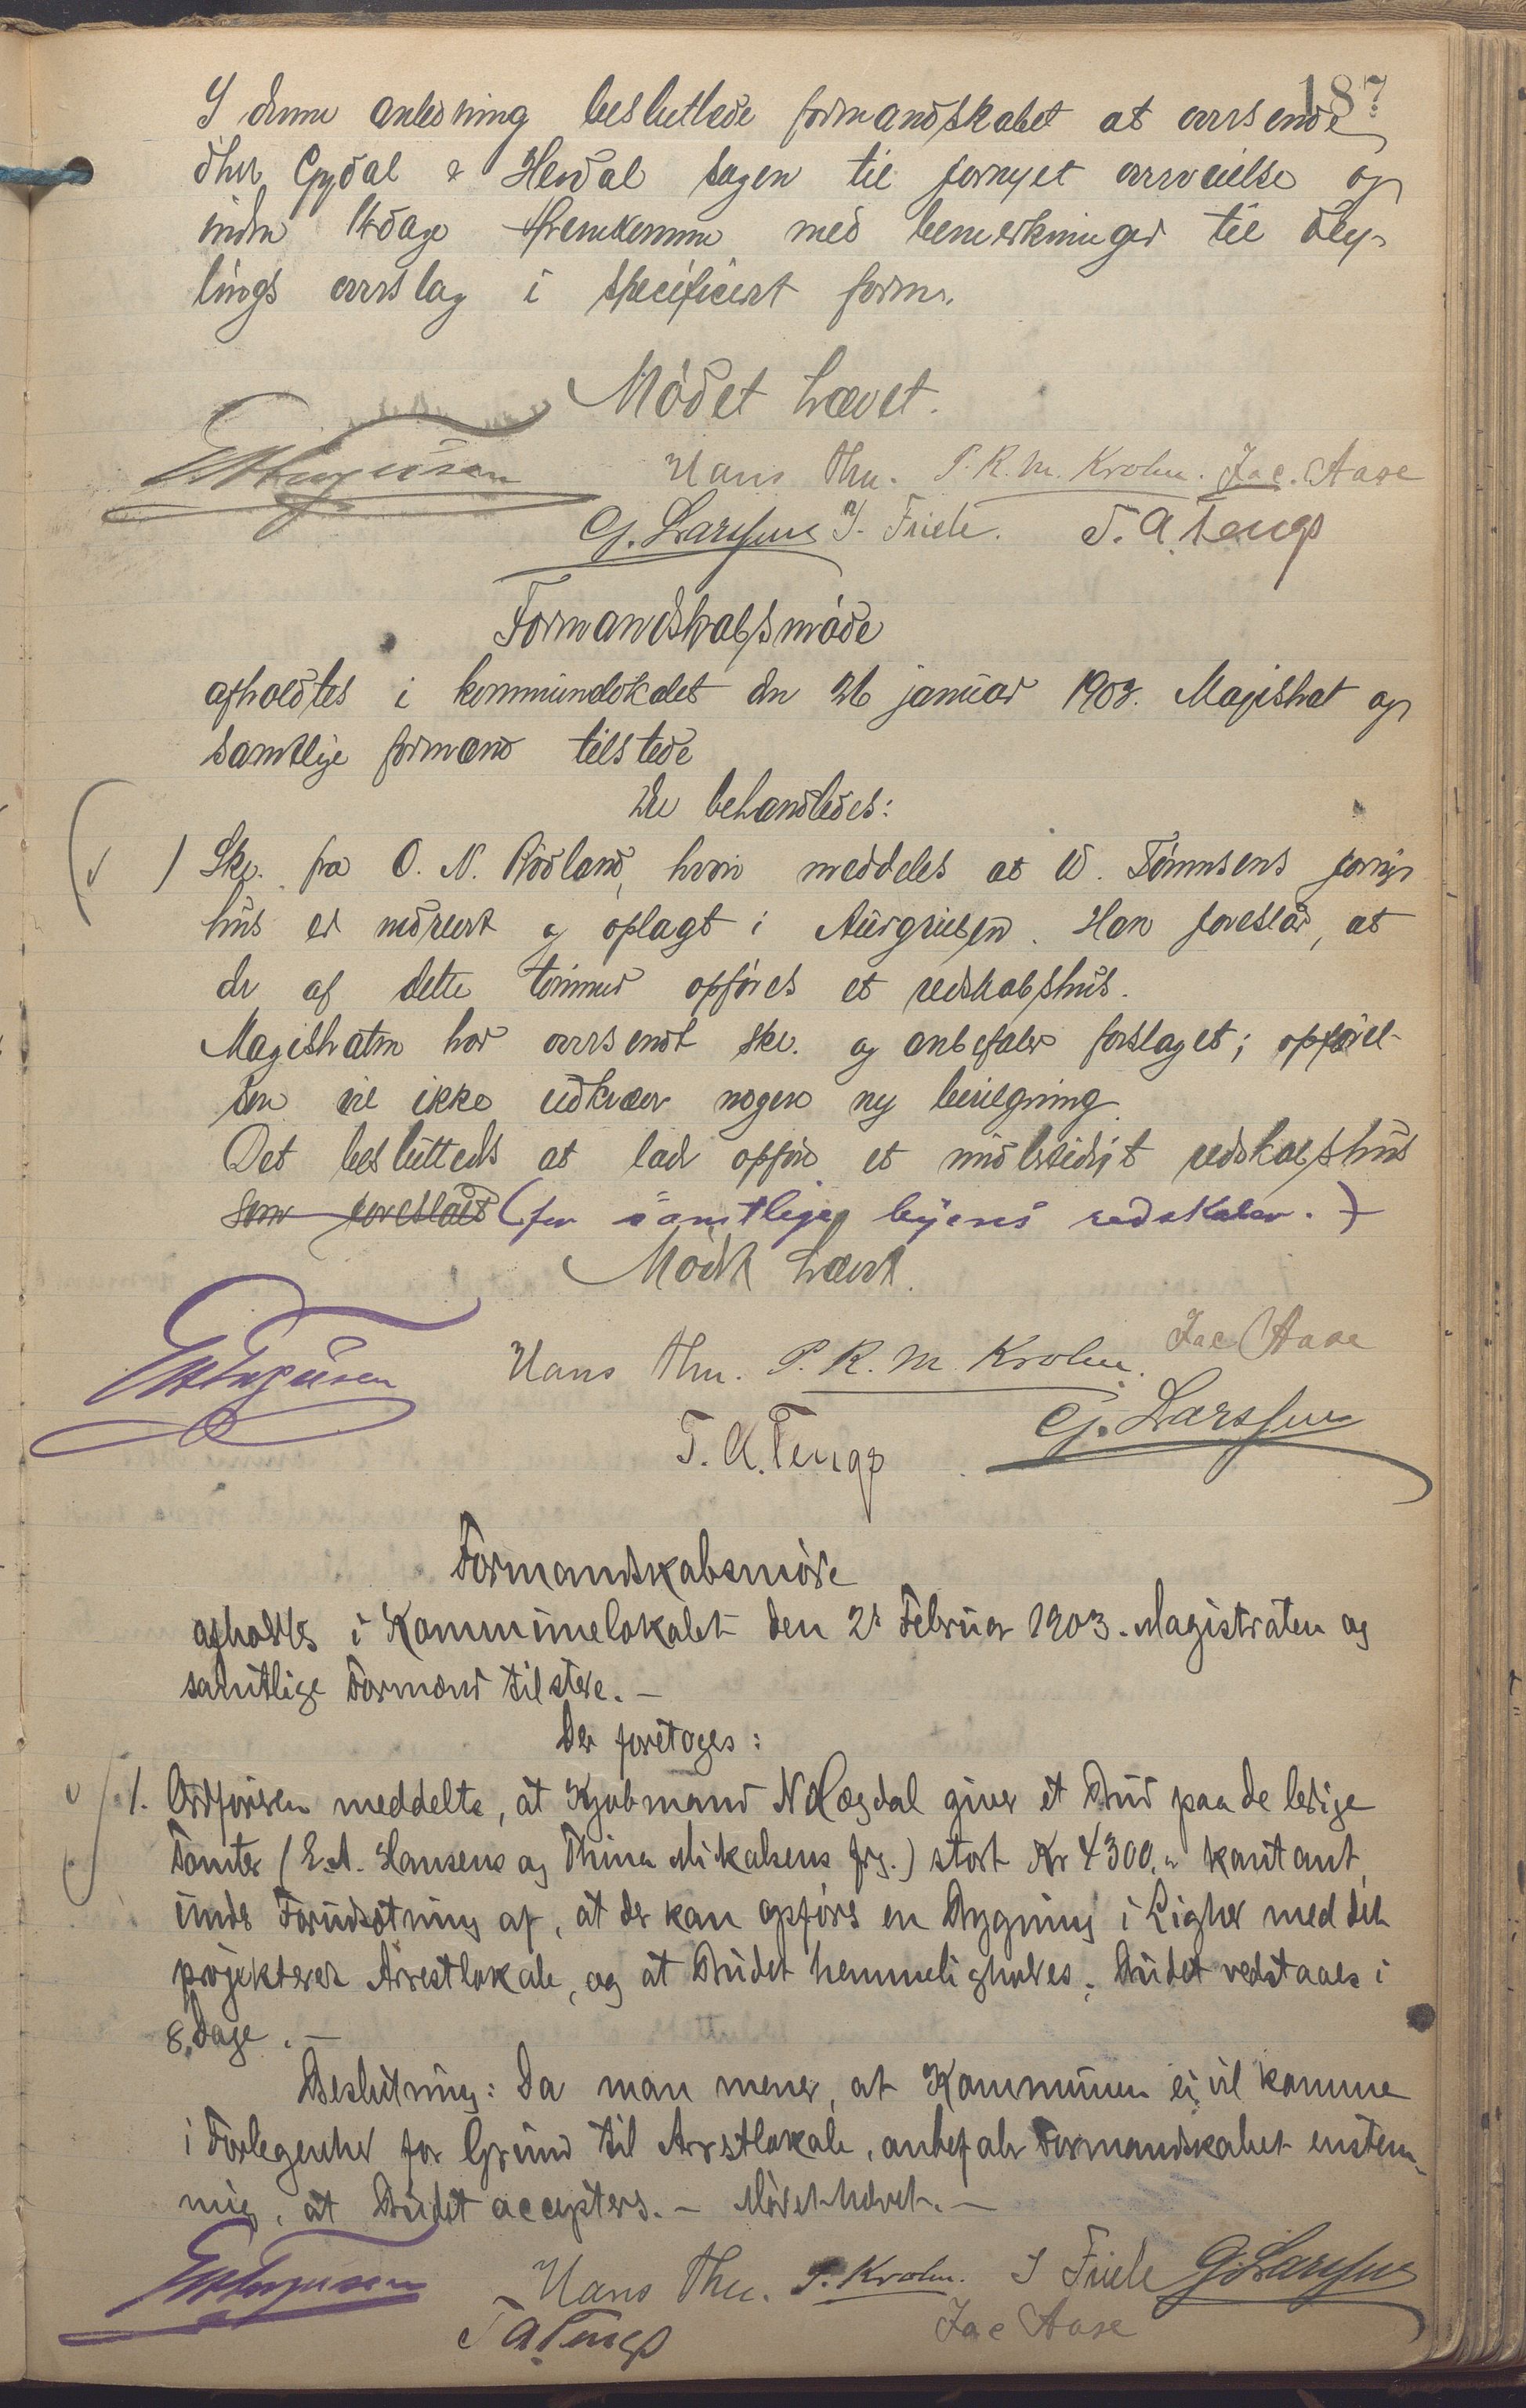 187
I denne anledning besluttede formandskabet at oversende
dhrr. Gydal & Herdal sagen til fornyet overveielse og
inden 14 dage fremkomme med bemerkninger til
lings overslag i specificert form.
Mödet hævet.
Hans Thu. P. R. M. Krohn. Jac. Aase
G. Larssen J. Friele. T. A. Tengs
Formandskabsmöde
afholdtes i kommunelokalet den 26 januar 1903. Magistrat og
samtlige formænd tilstede
Der behandledes:
1 Skr. fra O. N. Rödland, hvori meddeles at W. Tönnesens
hus er nedrevet og oplagt i Han foreslår, at
der af dette tömmer opföres et redskabshus.
Magistraten har oversendt skr. og anbefaler forslaget; opförel-
sen vil ikke udkræve nogen ny bevilgning.
Det besluttedes at lade opföre et redskabshus
som foreslaaet (for samtlige byens redskaber.)
Mödet hævet.
Hans Thu. P. R. M Krohn. Jac Aase
T. A. Tengs G. Larssen
Formandskabsmöde
afholdtes i Kommunelokalet den 2. Februar 1903. Magistraten og
samtlige Formænd tilstede. –
Der foretoges:
1. Ordföreren meddelte, at Kjöbmand N giver et Bud paa de ledige
Tomter (E. A. Hansens og Thina Mikalsens frg.) stort Kr 4300,- kontant,
under Forudsætning af, at der kan opföres en Bygning i Lighed med det
projekterede Arrestlokale, og at Budet hemmeligholdes; Budet vedstaaes i
8 Dage. –
Beslutning: Da man mener, at Kommunen ei vil komme
i Forlegenhed for Grund til Arrestlokale, anbefaler Formandskabet enstem-
mig, at Budet accepteres. – Mödet hævet. –
Hans Thu. P. Krohn. J Friele G. Larssen
T A Tengs Jac Aase